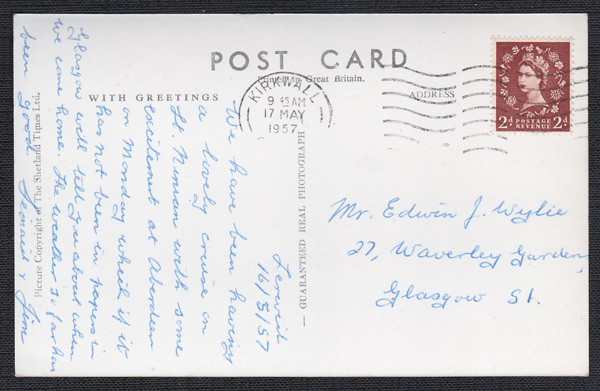 POST CARD
Printed in Great Britain.
WITH GREETINGS
ADDRESS
KIRKWALL
9 45 AM
17 MAY
1957
2d POSTAGE REVENUE 2d
Lerwick
16/5/57
We have been having
a lovely cruise on
St. Ninian with some
excitement at Aberdeen
on Monday which if it
has not been in papers in
Glasgow will tell you about when
we come home. The weather so far has
been good.
Mr. Edwin J. Wylie
27, Waverley Gardens,
Glasgow S1.
— GUARANTEED REAL PHOTOGRAPH —
Picture Copyright of The Shetland Times Ltd.